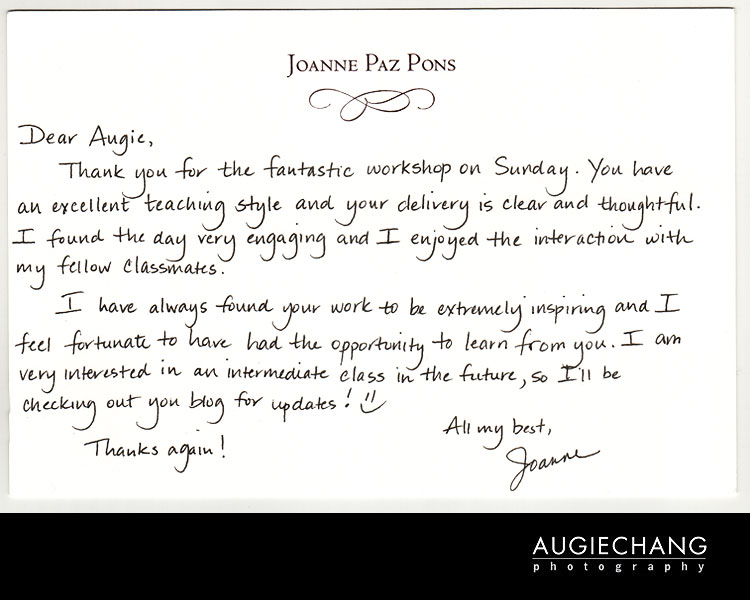 JOANNE PAZ PONS
Dear Augie,
Thank you for the fantastic workshop on Sunday. You have
an excellent teaching style and your delivery is clear and thoughtful.
I found the day very engaging and I enjoyed the interaction with
my fellow classmates.
I have always found your work to be extremely inspiring and I
feel fortunate to have had the opportunity to learn from you. I am
very interested in an intermediate class in the future, so I'll be
checking out you blog for updates! :)
Thanks again!
All my best,
Joanne
AUGIECHANG
photography